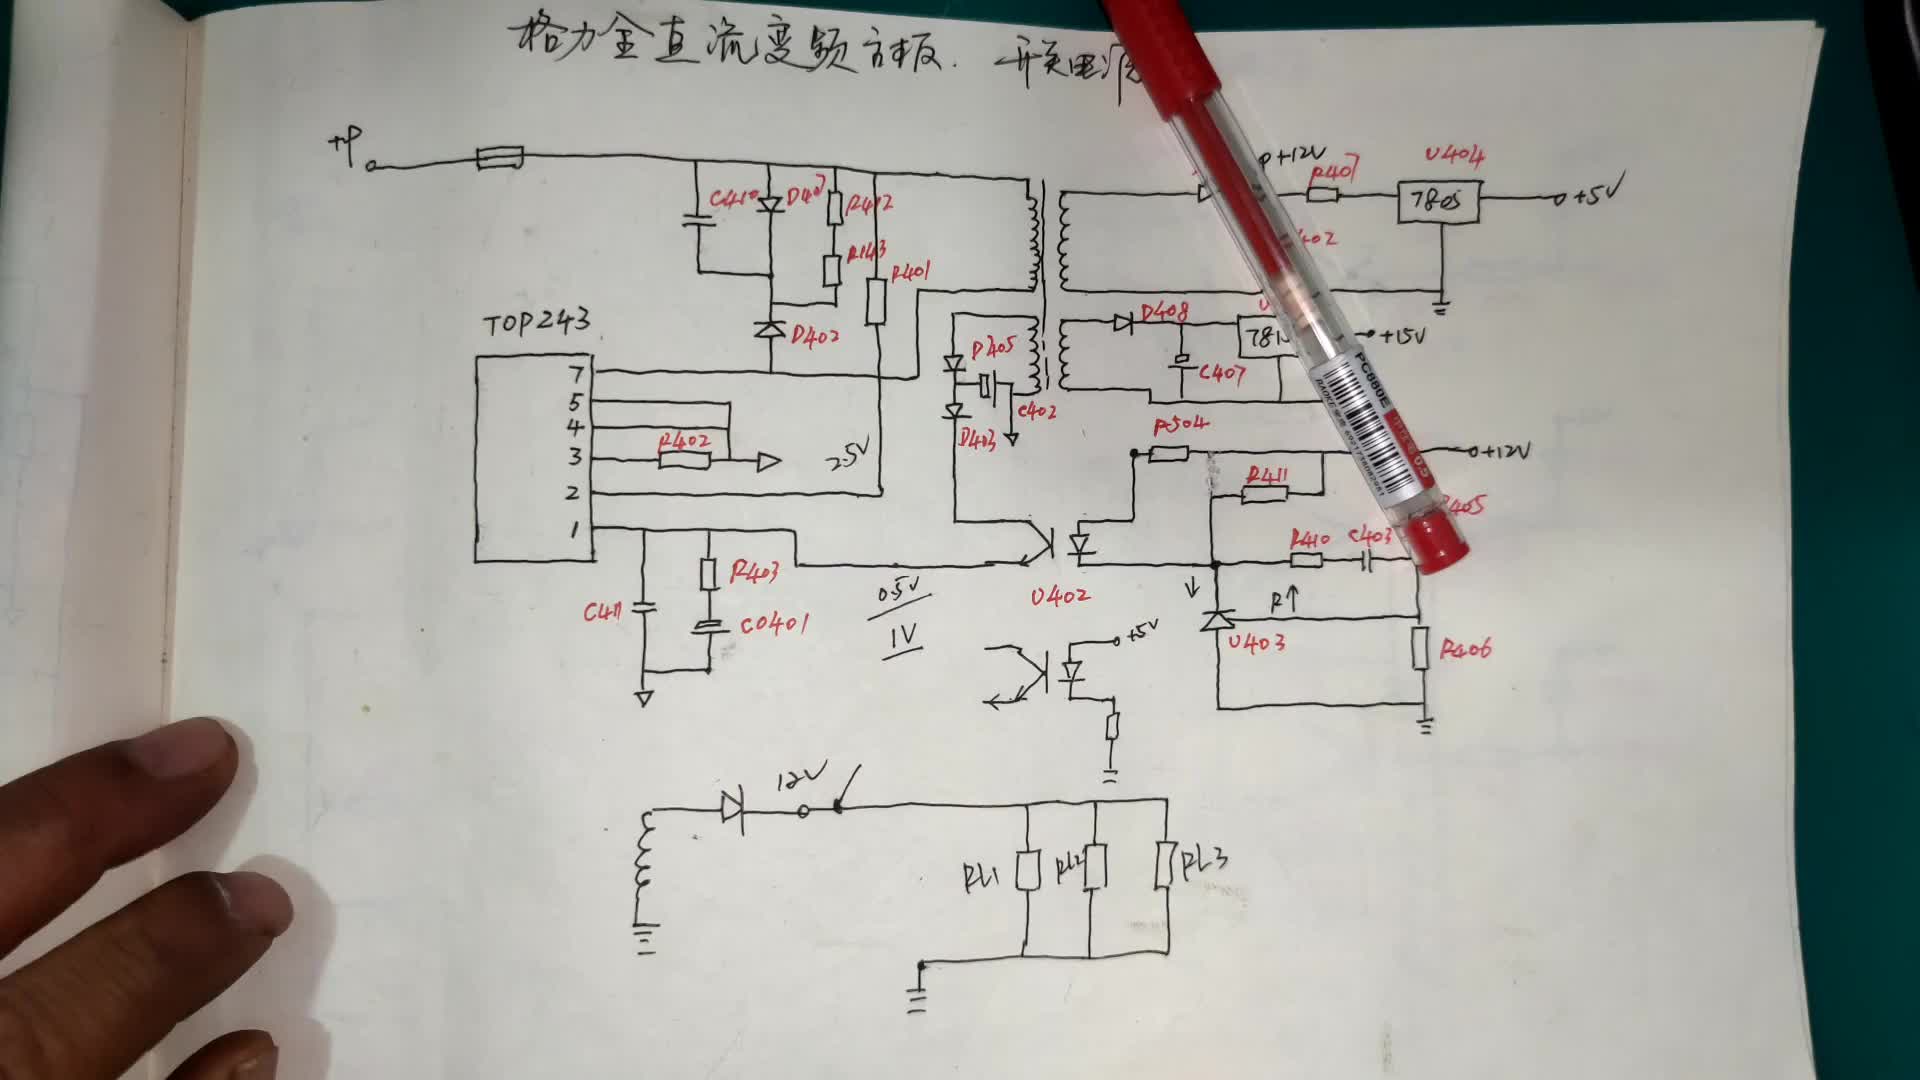 格力全直流变频主板. 开关电源
+P
+12V
R407
U404
7805
+5V
C410
D407
R412
R143
R401
D408
+15V
TOP243
D402
D405
C407
7
5
4
R402
3
2.5V
2
1
C402
D403
R504
+12V
R411
R410
C403
R403
C411
C0401
0.5V
1V
U402
R↑
U403
R406
+5V
12V
RL1
RL2
RL3
PC880E